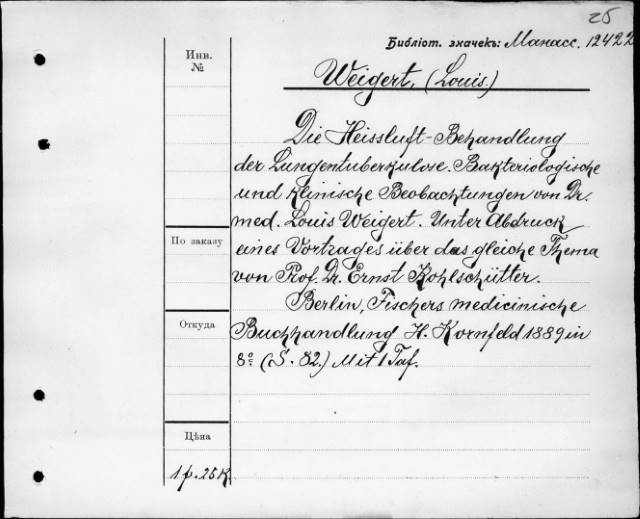 25
Библіот. значекъ: Манасс. 12422
Инв.
№
Weigert, (Louis.)
Die Heissluft-Behandlung
der Lungentuberkulose. Bakteriologische
und klinische Beobachtungen von Dr.
med. Louis Weigert. Unter Abdruck
По заказу
eines Vortrages über das gleiche Thema
von Prof. Dr. Ernst Kohlschütter.
Berlin, Fischers medicinische
Откуда
Buchhandlung H. Kornfeld 1889 in
8º (S. 82.) Mit 1 Taf.
Цѣна
1 р. 25 к.